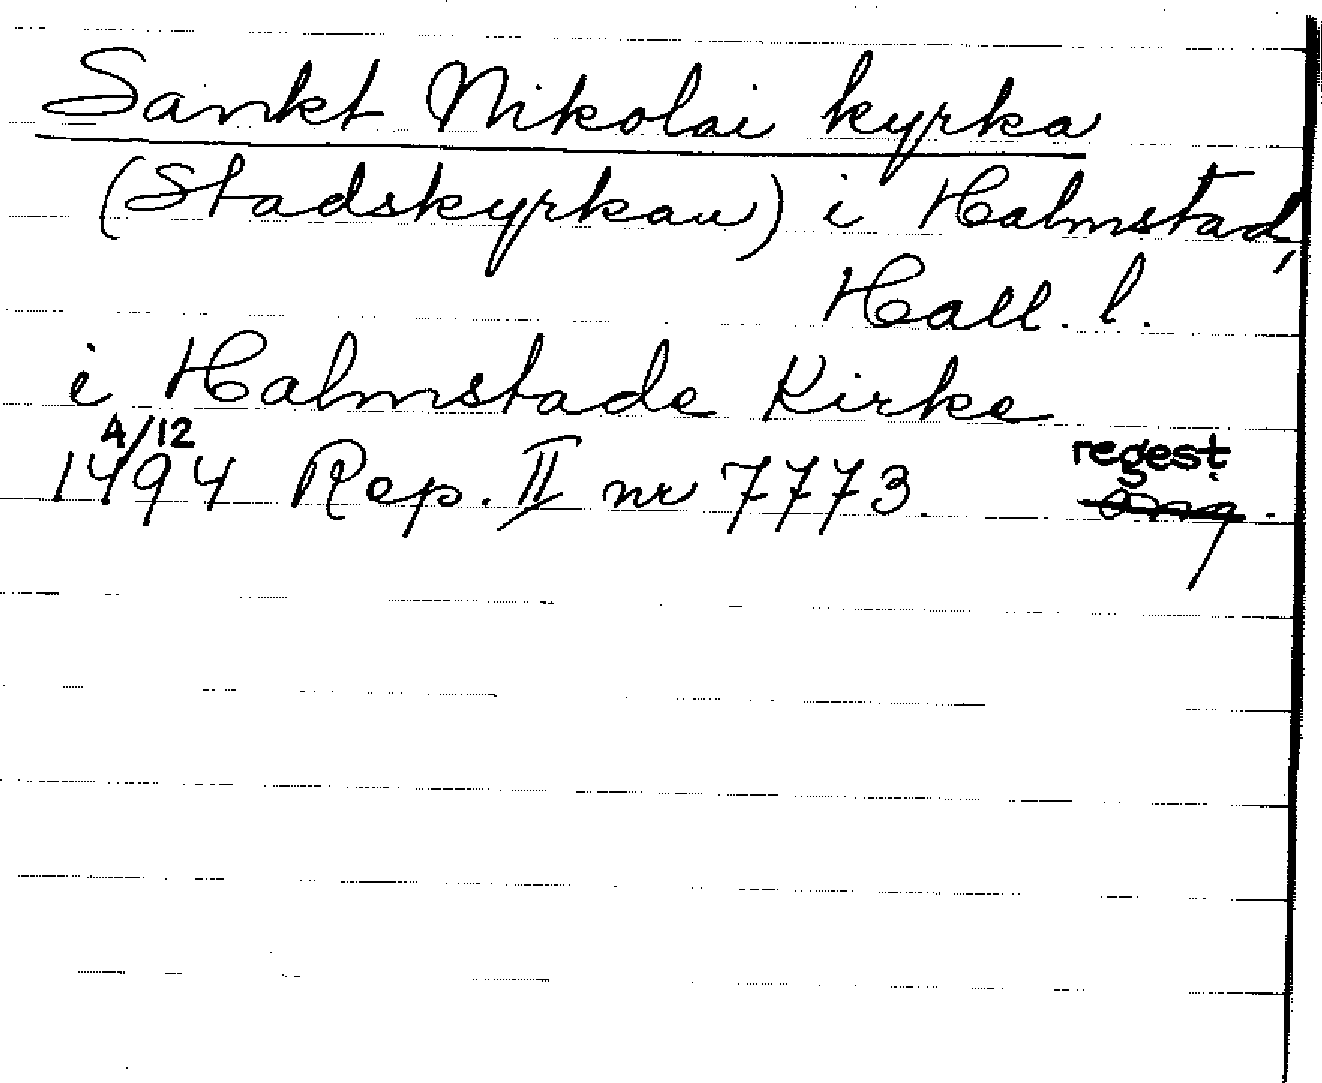 Sankt Nikolai kyrka
(Stadskyrkan) i Halmstad,
Hall. l.
i Halmstade Kirke
4/12
1494 Rep. II nr 7773. regest.